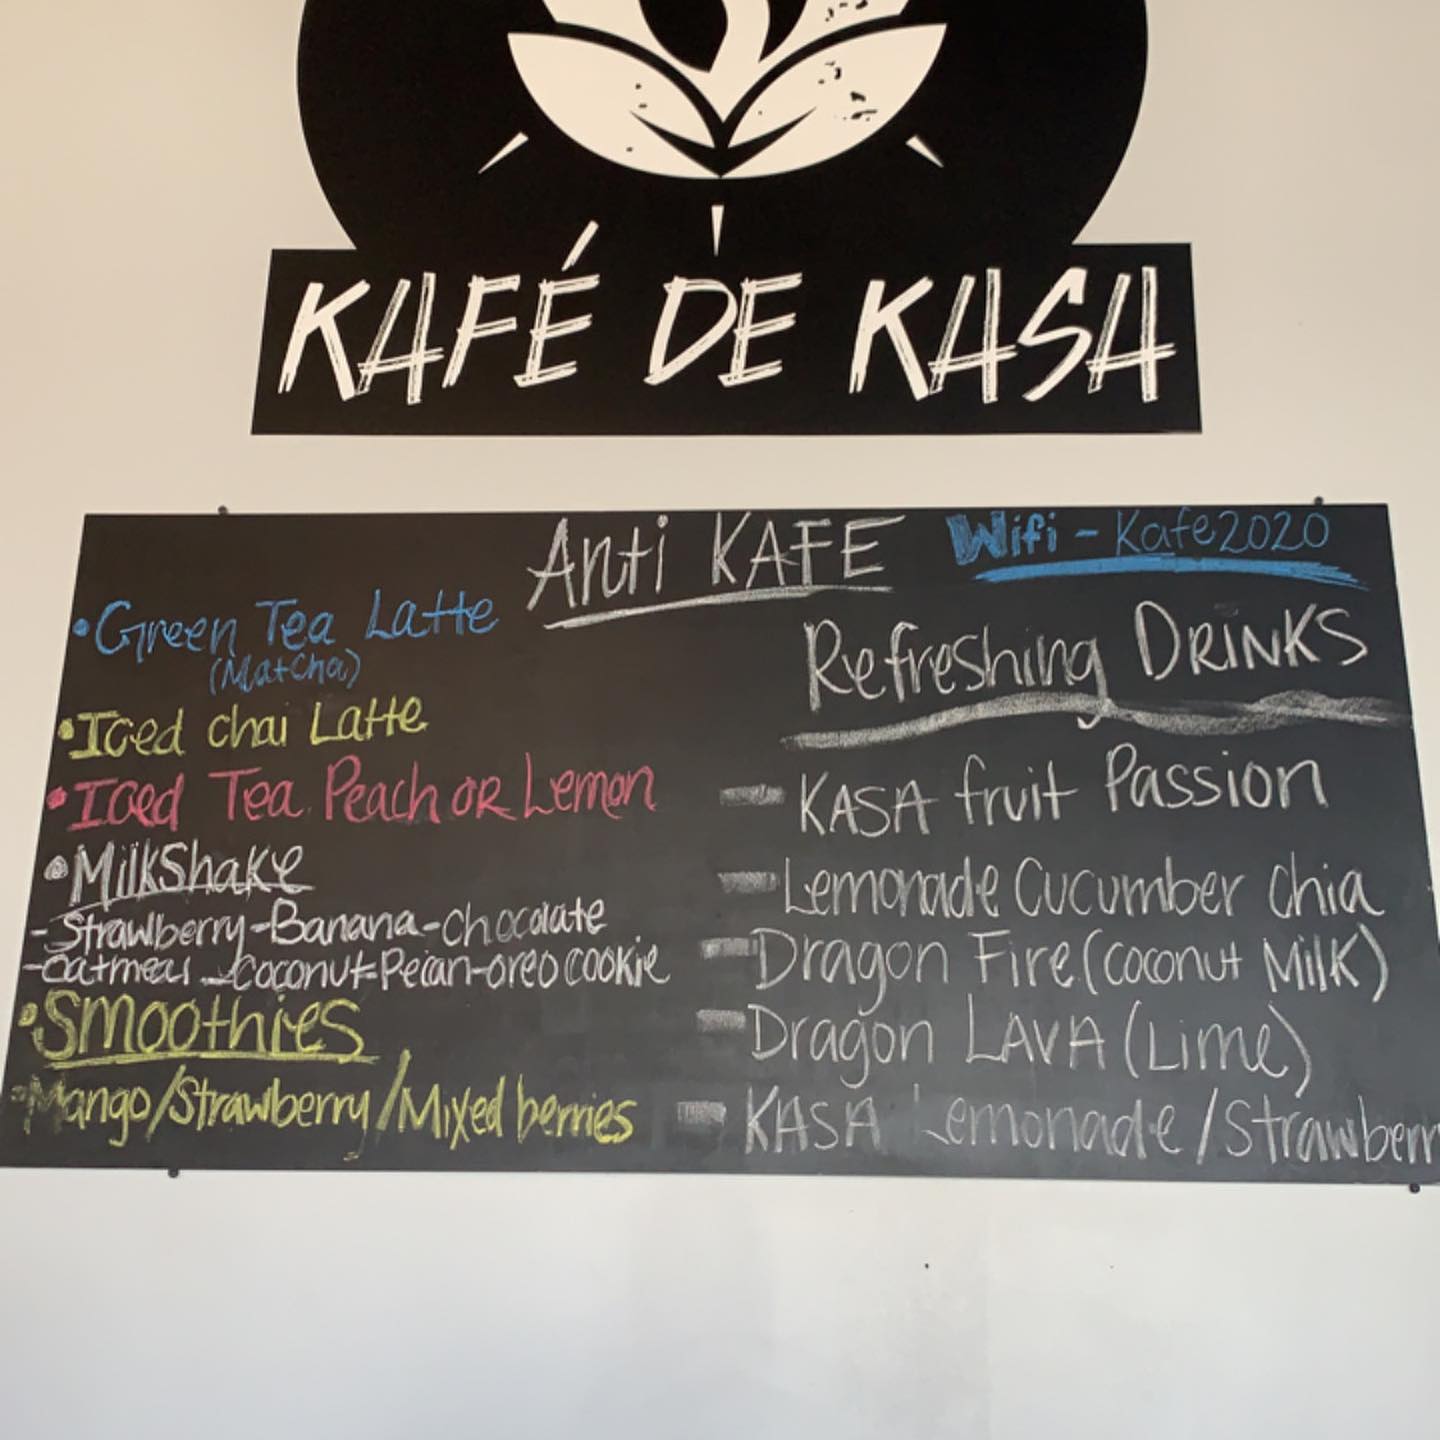 KAFÉ DE KASA
Anti KAFE
Wifi - Kafe2020
• Green Tea Latte
(Matcha)
• Iced chai Latte
• Iced Tea Peach OR Lemon
• MilkShake
- Strawberry - Banana - chocolate
- oatmeal - coconut - Pecan - oreo cookie
• Smoothies
- Mango/Strawberry/Mixed berries
Refreshing DRINKS
- KASA fruit Passion
- Lemonade Cucumber chia
- Dragon Fire (coconut Milk)
- Dragon LAVA (Lime)
- KASA Lemonade / Strawberr